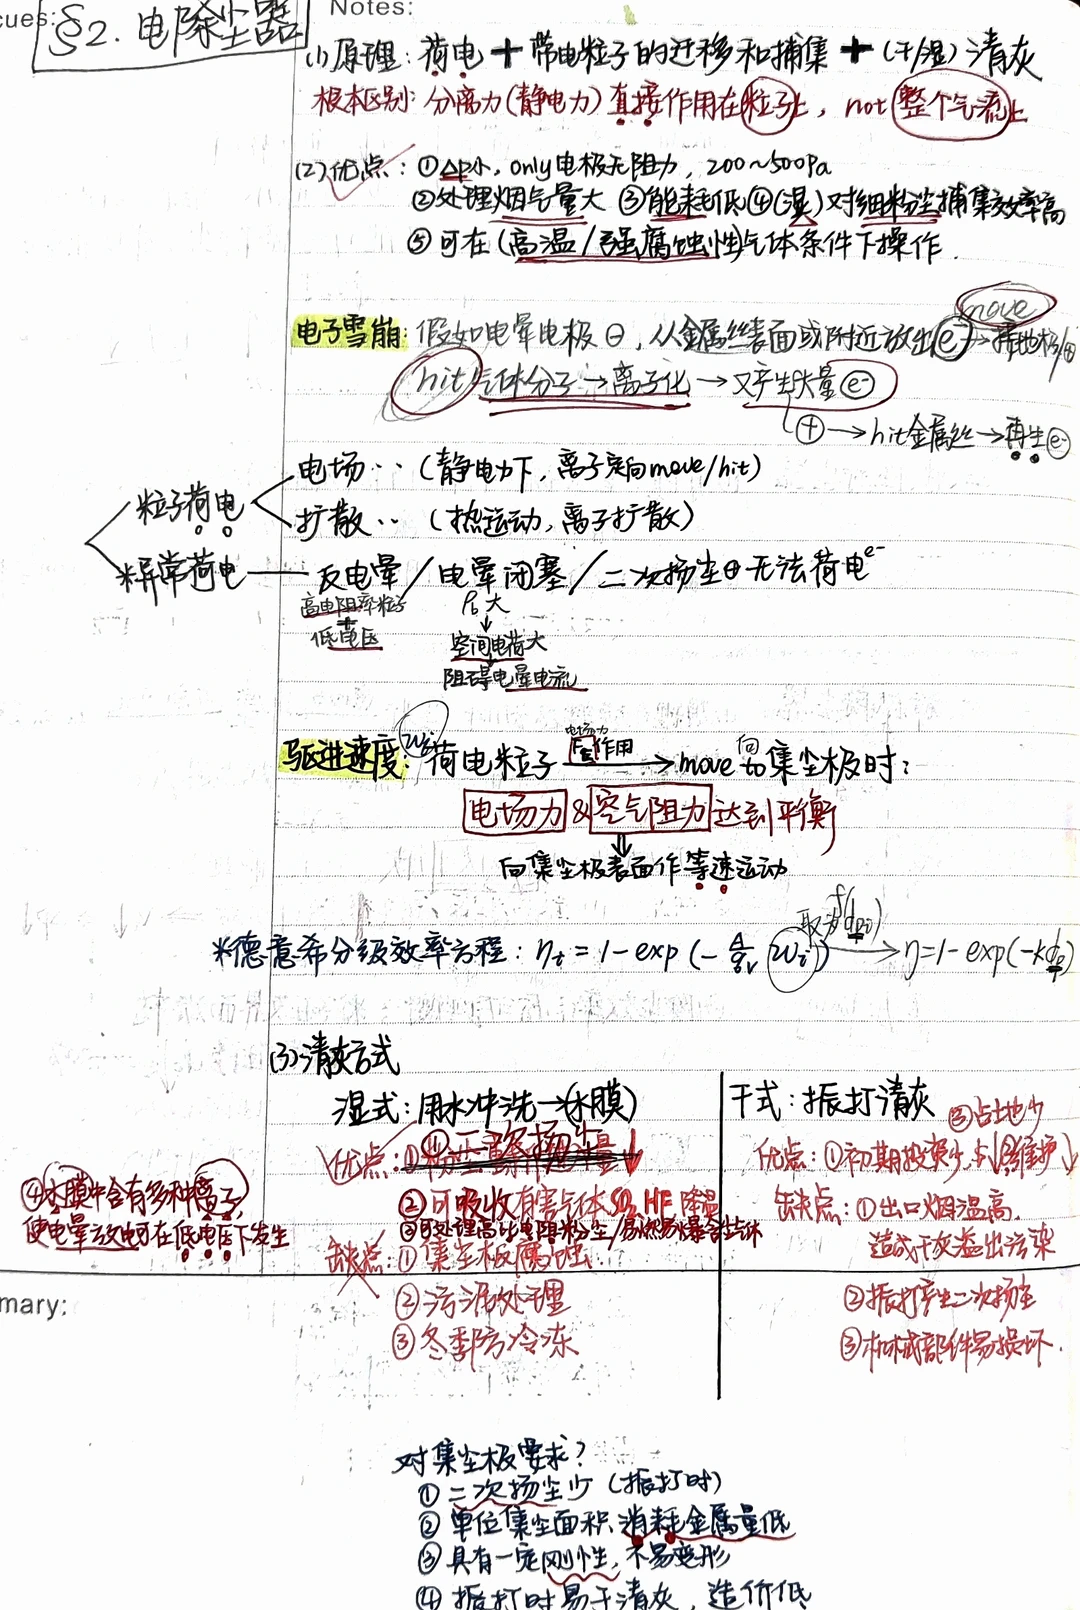 cues:
Notes:
§2. 电除尘器
(1)原理: 荷电 + 带电粒子的迁移和捕集 + (干/湿) 清灰
根本区别: 分离力(静电力) 直接作用在粒子上, not 整个气流上
(2)优点: ①△p小, only电极无阻力, 200~500Pa
②处理烟气量大 ③能耗低 ④(湿)对细粉尘捕集效率高
⑤可在(高温/强腐蚀性)气体条件下操作.
move
电子雪崩: 假如电晕电极⊖, 从金属丝表面或附近放出e⁻→接地极⊕
hit气体分子→离子化→又产生大量e⁻
⊕→hit金属丝→再生e⁻
电场·· (静电力下, 离子定向move/hit)
粒子荷电
扩散·· (热运动, 离子扩散)
*异常荷电 — 反电晕/电晕闭塞/二次扬尘⊕无法荷电e⁻
高电阻率粒子
+
低电压
大
↓
空间电荷大
阻碍电晕电流
驱进速度ωi: 荷电粒子 电场力FE作用→move向to集尘极时:
电场力&空气阻力达到平衡
⇓
向集尘极表面作等速运动
取为f(dpi)
*德意希分级效率方程: ηi = 1-exp(-A/qv ωi) → η=1-exp(-kdp)
(3)清灰方式
湿式: 用水冲洗→(水膜)
干式: 振打清灰
③占地少
优点: ①
②可吸收有害气体SO₂,HF,降温
③可处理高比电阻粉尘/易燃易爆含尘气体
④水膜中含有多种离子,
使电晕放电可在低电压下发生
缺点: ①集尘极腐蚀
②污泥处理
③冬季防冷冻
优点: ①初期投资少, ②维护↓
缺点: ①出口烟温高.
造成干放溢出污染
②振打产生二次扬尘
③机械部件易损坏.
mary:
对集尘极要求?
①二次扬尘少 (振打时)
②单位集尘面积消耗金属量低
③具有一定刚性, 不易变形
④振打时易于清灰, 造价低